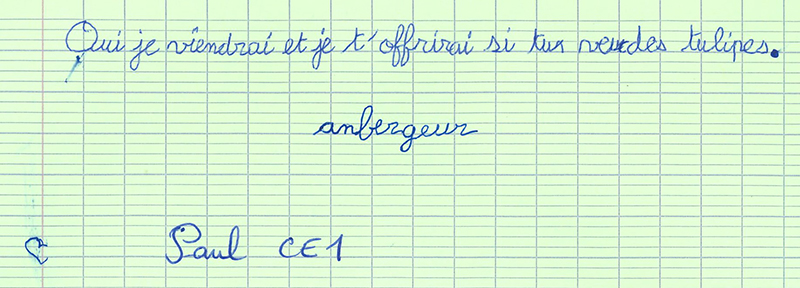 Oui je viendrai et je t'offrirai si tu veux des tulipes.
anbergeur
Paul CE1